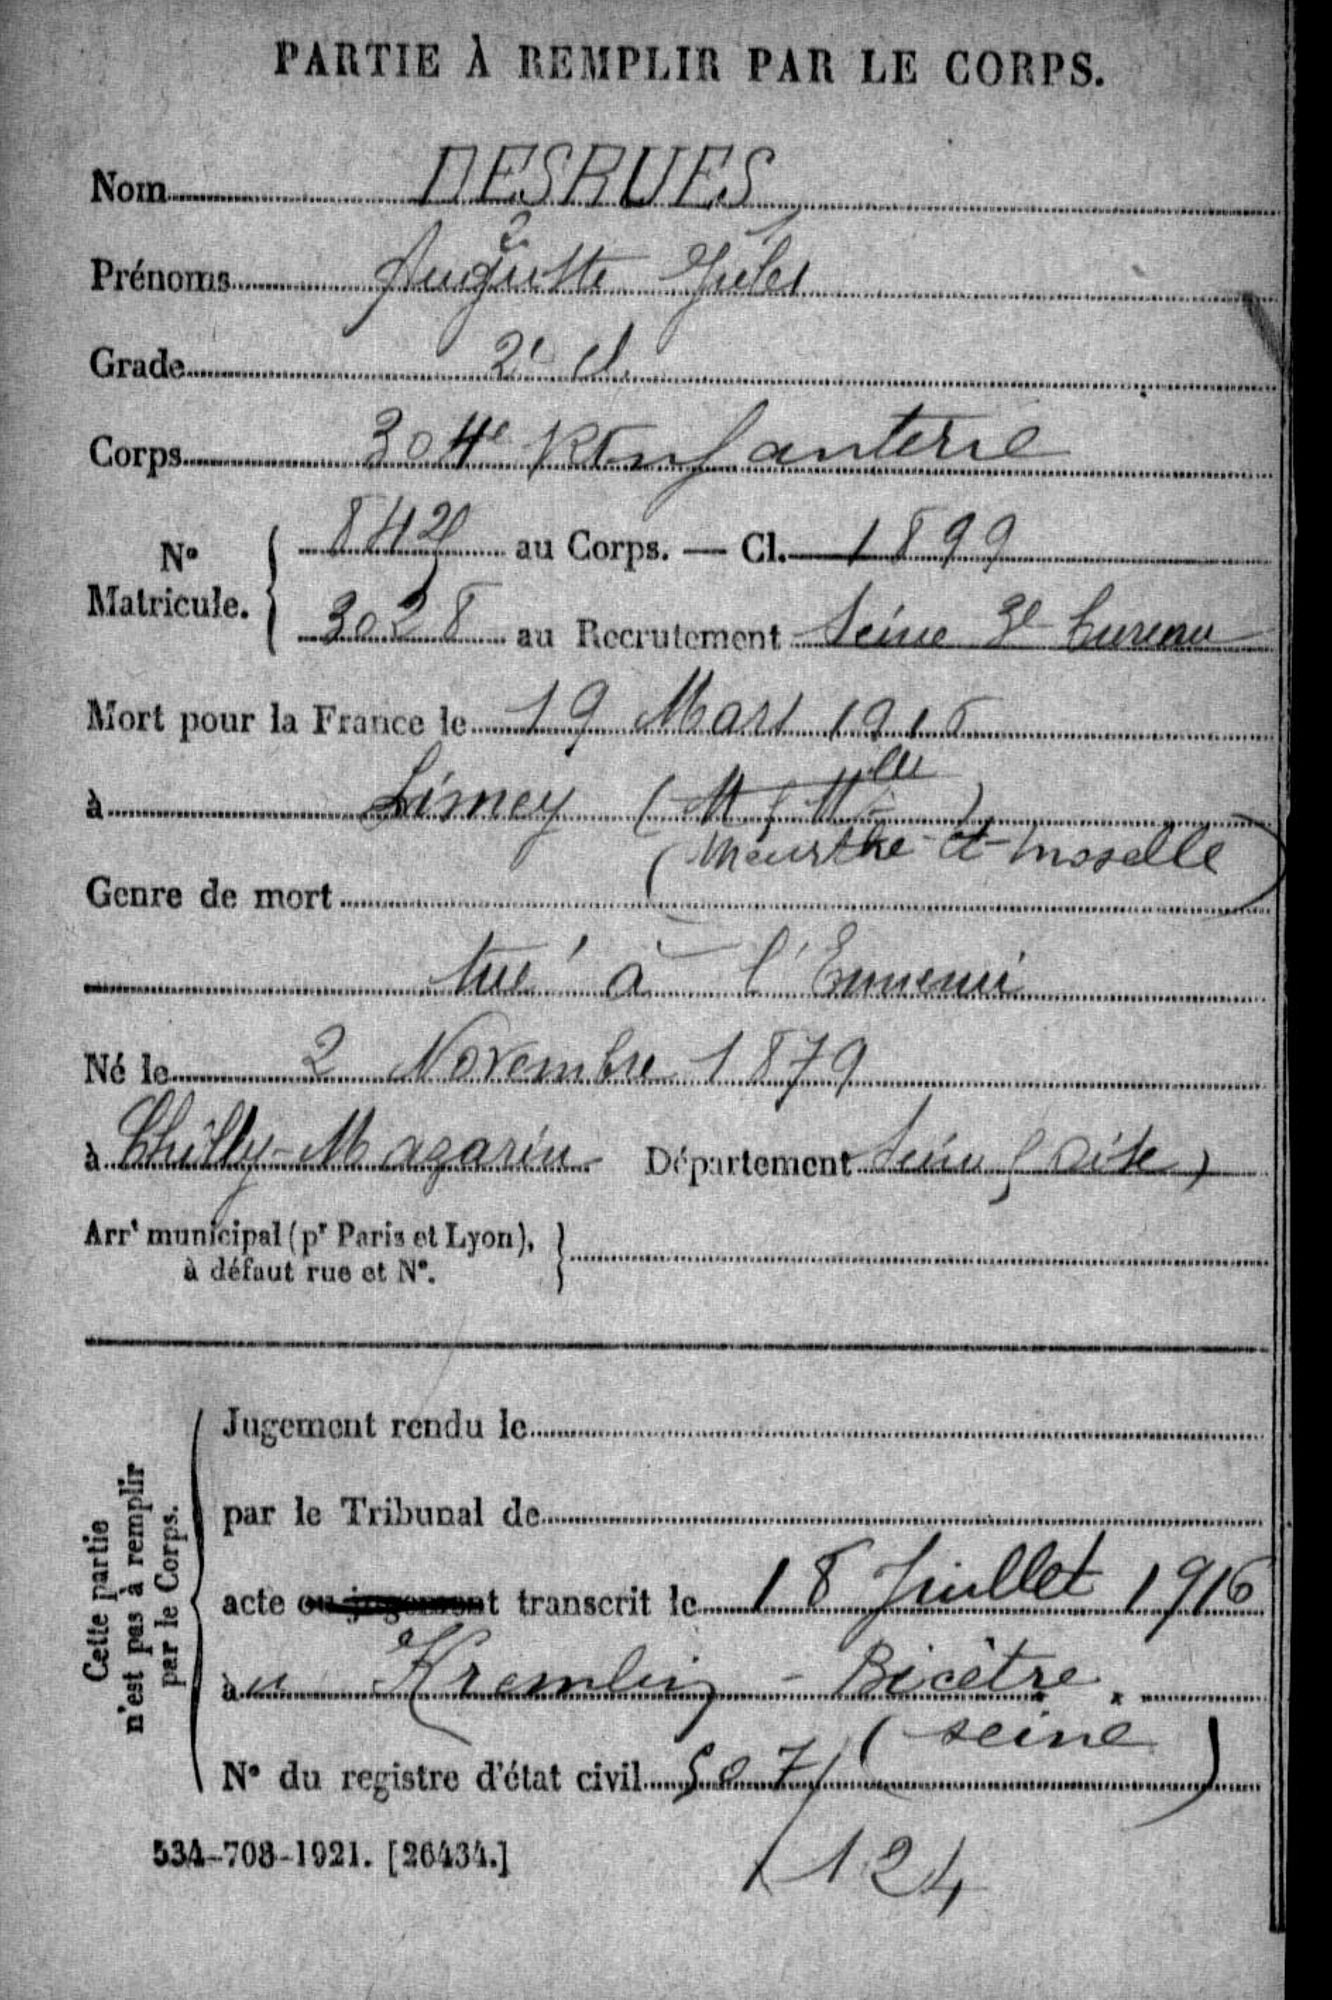 PARTIE À REMPLIR PAR LE CORPS.
Nom DESRUES
Prénoms Auguste Jules
Grade 2e Cl.
Corps 304e RInfanterie
No Matricule. { 842 au Corps. — Cl. 1899
3028 au Recrutement Seine 3e bureau
Mort pour la France le 19 Mars 1916
à Limey (M & Mlle)
(Meurthe-et-Moselle)
Genre de mort
tué à l'Ennemi
Né le 2 Novembre 1879
à Chilly-Mazarin Département Seine & Oise)
Arrt municipal (pr Paris et Lyon),
à défaut rue et No.
Cette partie
n'est pas à remplir
par le Corps.
Jugement rendu le
par le Tribunal de
acte ou jugement transcrit le 18 Juillet 1916
au Kremlin-Bicêtre.
(seine)
No du registre d'état civil 507/
534-708-1921. [26434.]
124